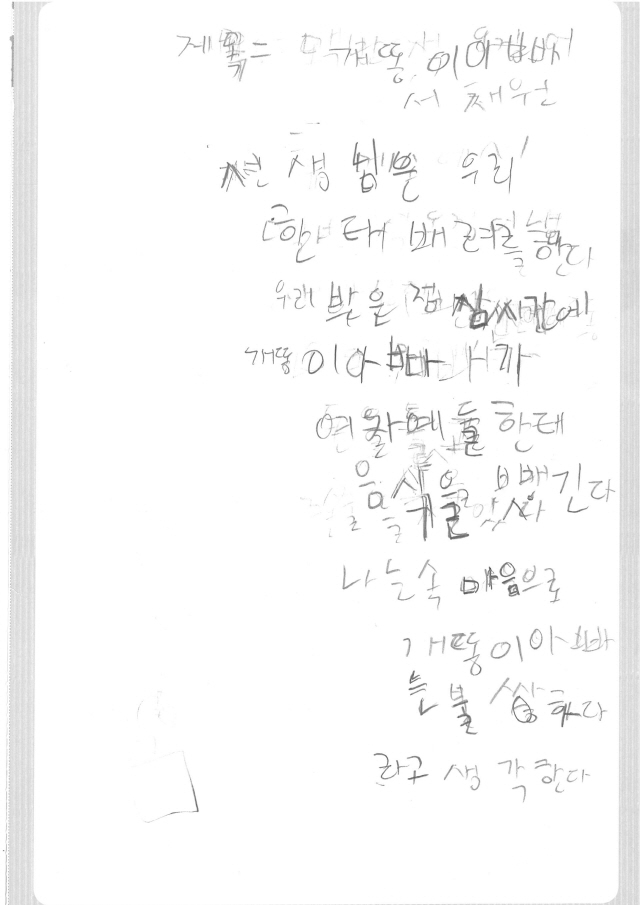 제목= 개똥이아빠
서채우
선생님은 우리
한태 배려를한다
우리 반은 점심시간에
개똥이아빠니까
여자얘들한태
음식을 뺏긴다
나는속 마음으로
개똥이아빠
는불쌍하다
라고 생각한다